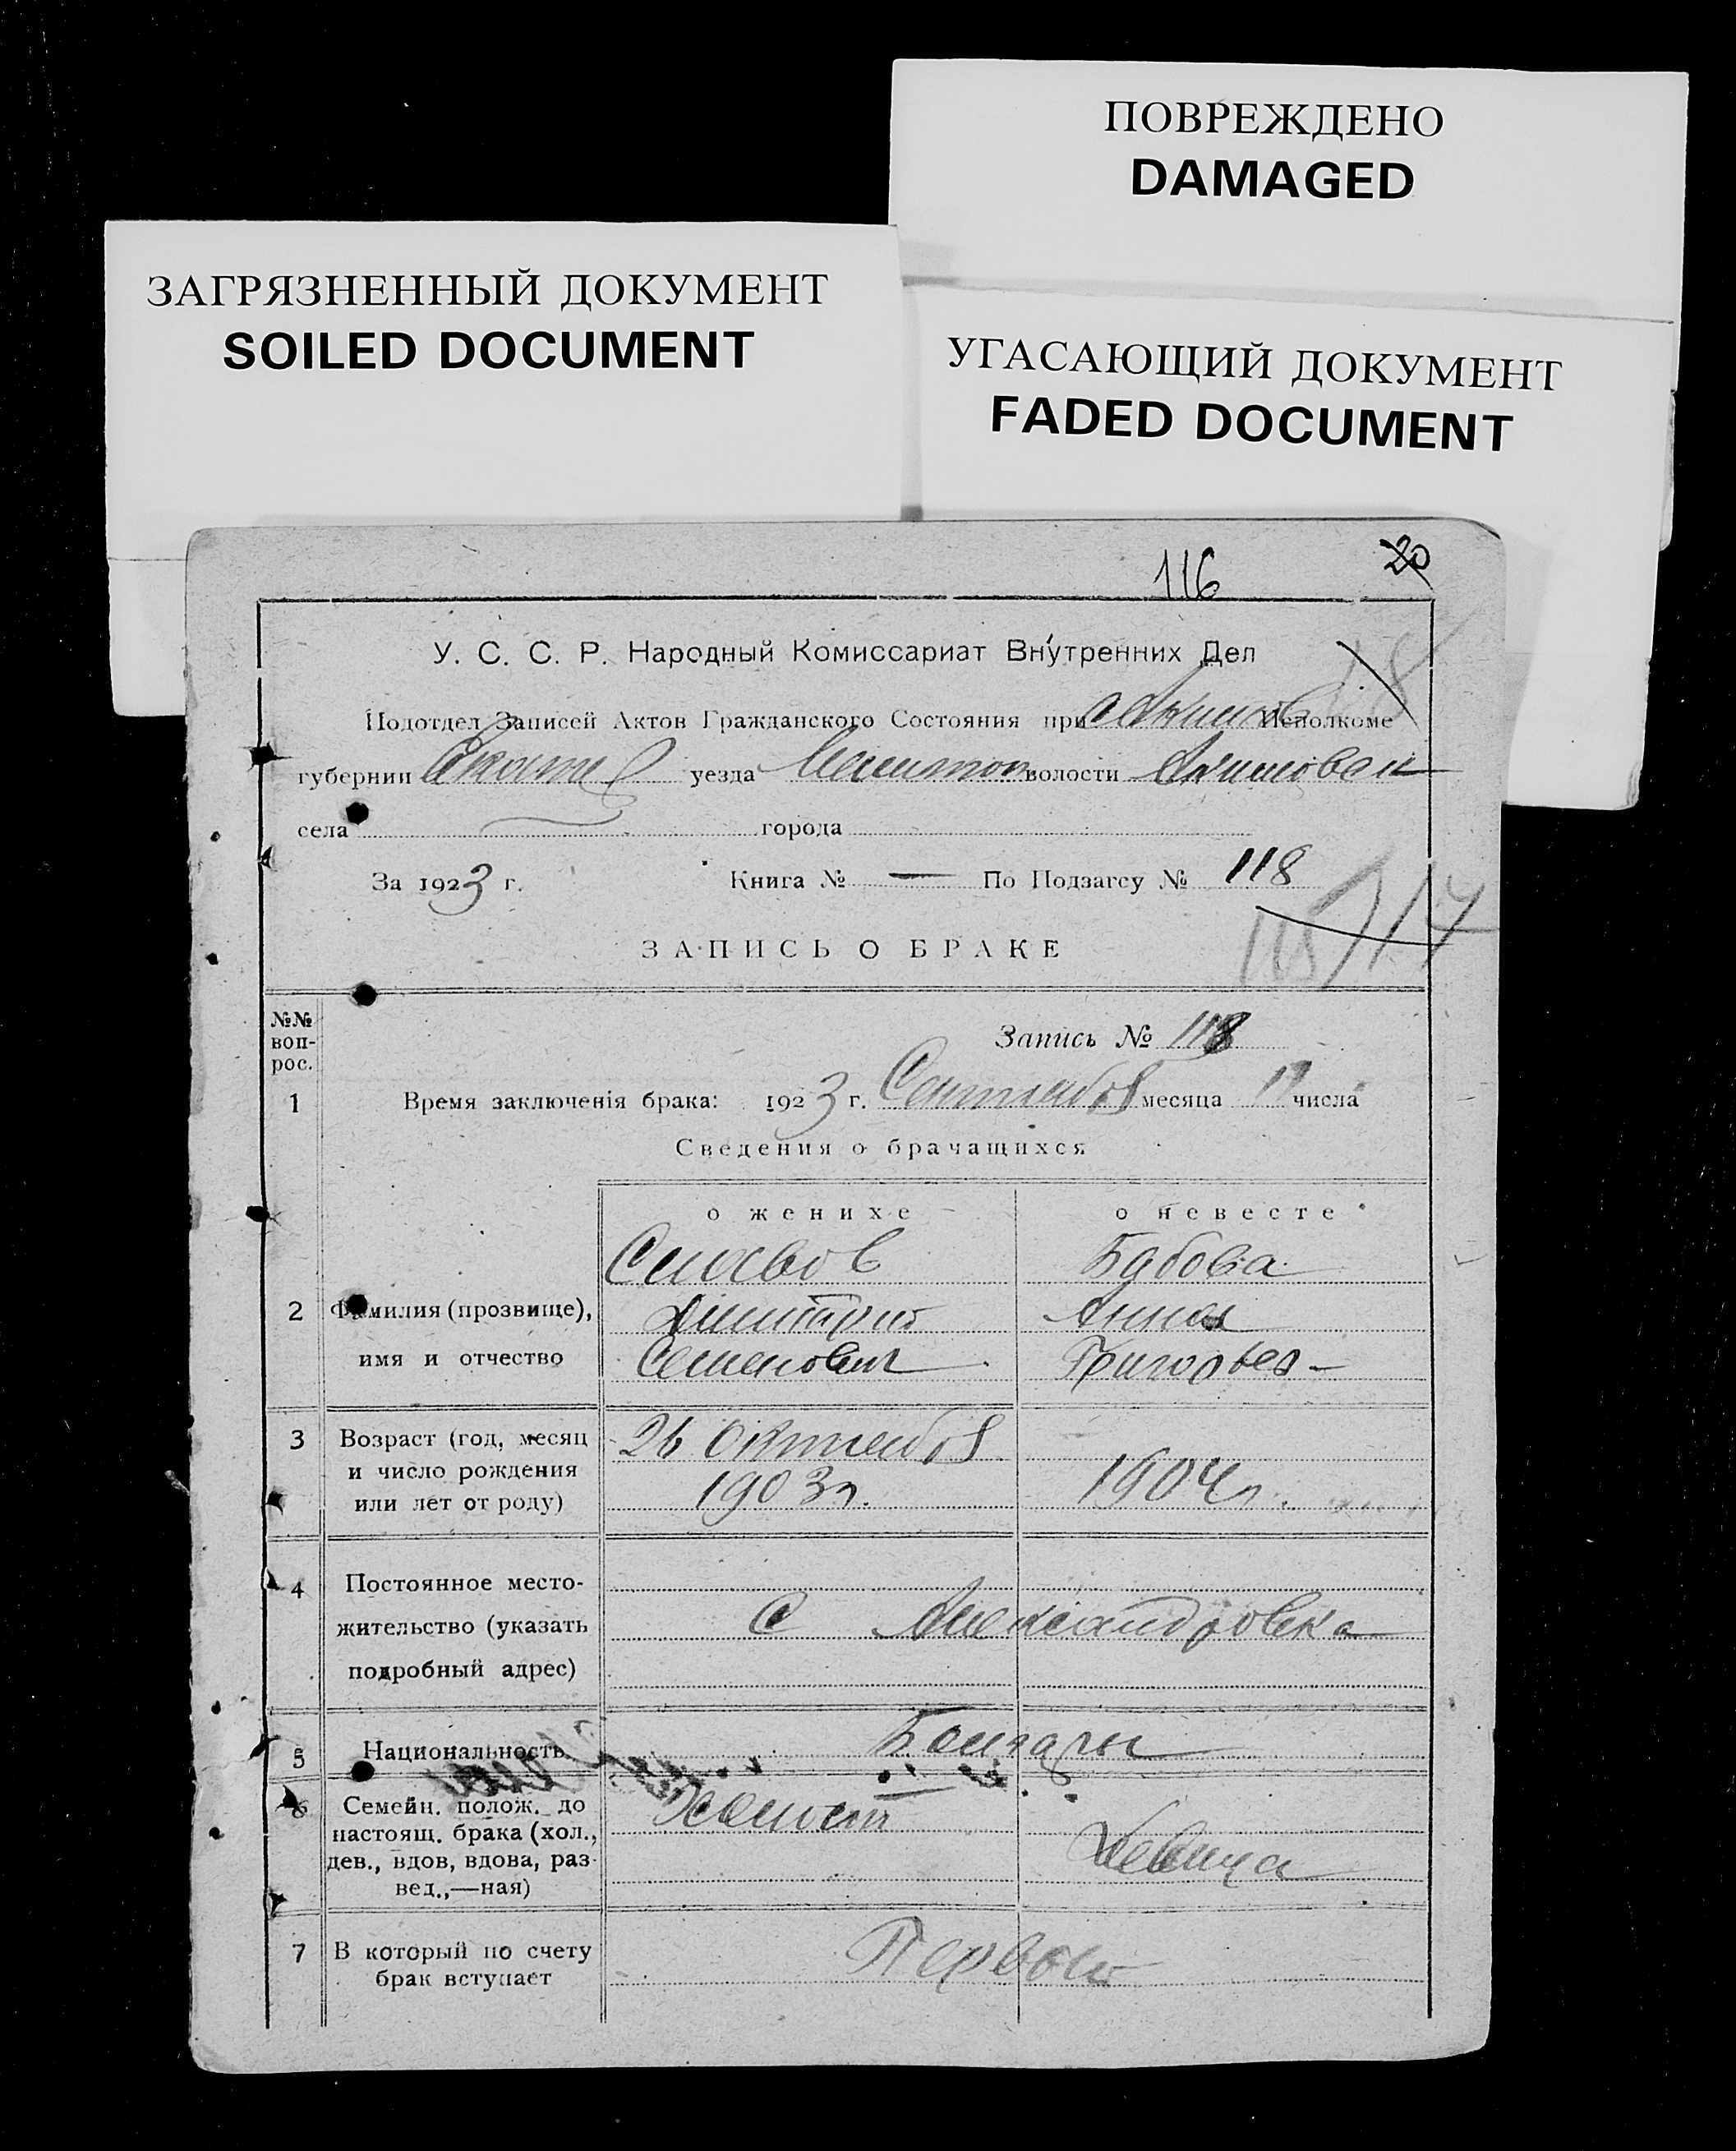 ПОВРЕЖДЕНО
DAMAGED
ЗАГРЯЗНЕННЫЙ ДОКУМЕНТ
SOILED DOCUMENT
УГАСАЮЩИЙ ДОКУМЕНТ
FADED DOCUMENT
116 20
У. С. С. Р. Народный Комиссариат Внутренних Дел
Подотдел Записей Актов Гражданского Состояния при Исполкоме
губернии Екатер уезда Мелитоп волости Акимовск
села города
За 1923 г. Книга № — По Подзагсу № 118
117
ЗАПИСЬ О БРАКЕ
№№ воп-рос.
Запись № 118
1 Время заключенія брака: 1923 г. Сентября месяца числа
Сведения о брачащихся
о женихе о невесте
2 Фамилия (прозвище), имя и отчество
Славов
Димитрий
Семенович
Бубова
Анна
Григорьев –
3 Возраст (год, месяц и число рождения или лет от роду)
26 Октября
1903 г.
1904 г.
4 Постоянное место-жительство (указать подробный адрес)
С Александровка
5 Национальность
Болгары
6 Семейн. полож. до настоящ. брака (хол., дев., вдов, вдова, раз-вед.,—ная)
Холост
Девица
7 В который по счету брак вступает
Первый